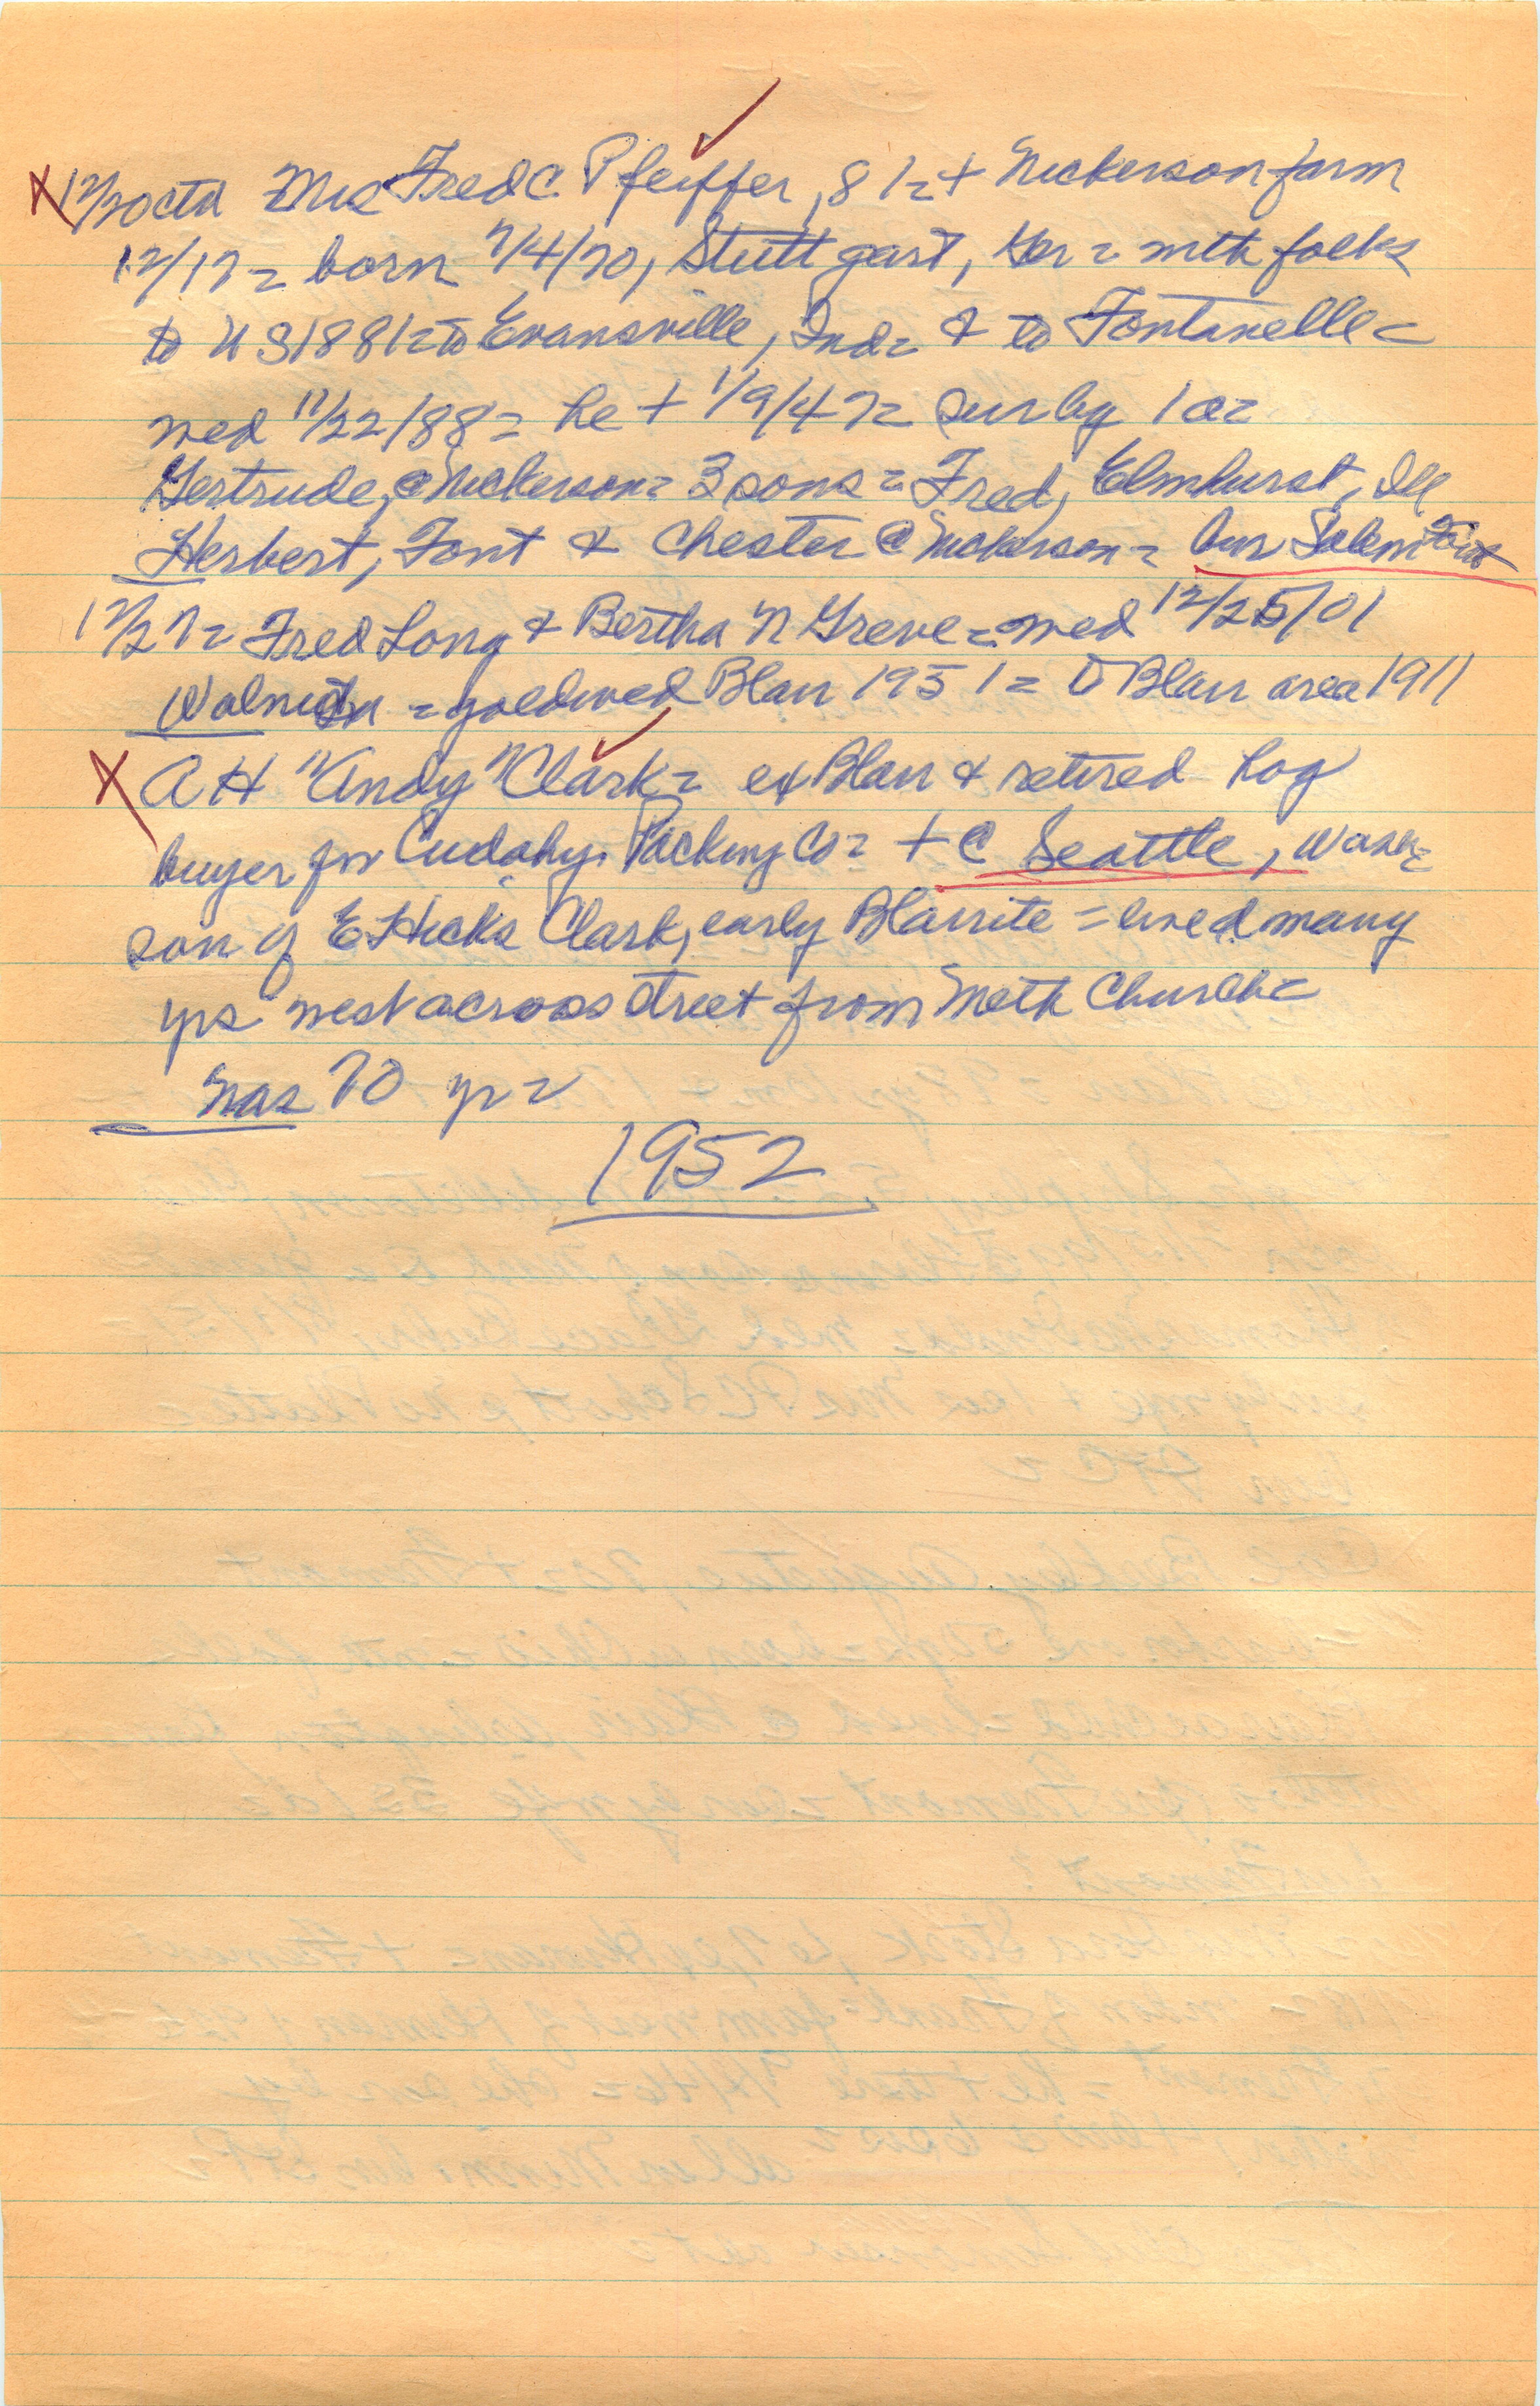 X 12/20 ctd Mrs Fred C. Pfeiffer, 81 = + Nickerson farm
12/17 = born 7/4/70, Stuttgart, Ger = with folks
to US 1881 = to Evansville, Ind = & to Fontanelle =
wed 11/22/88 = he + 1/9/47 = sur by 1 a =
Gertrude, @ Nickerson = 3 sons = Fred, Elmhurst, Ill
Herbert, Font & Chester @ Nickerson = bur Salem Font
12/27 = Fred Long & Bertha N Greve = wed 12/25/01
= goldwed Blair 1951 = to Blair area 1911
X A H "Andy" Clark = ex Blair & retired hog
buyer for Cudahy Packing Co = + @ Seattle, Wash =
son of E Hicks Clark, early Blairite = lived many
yrs west across street from Meth Church =
was 70 yr =
1952